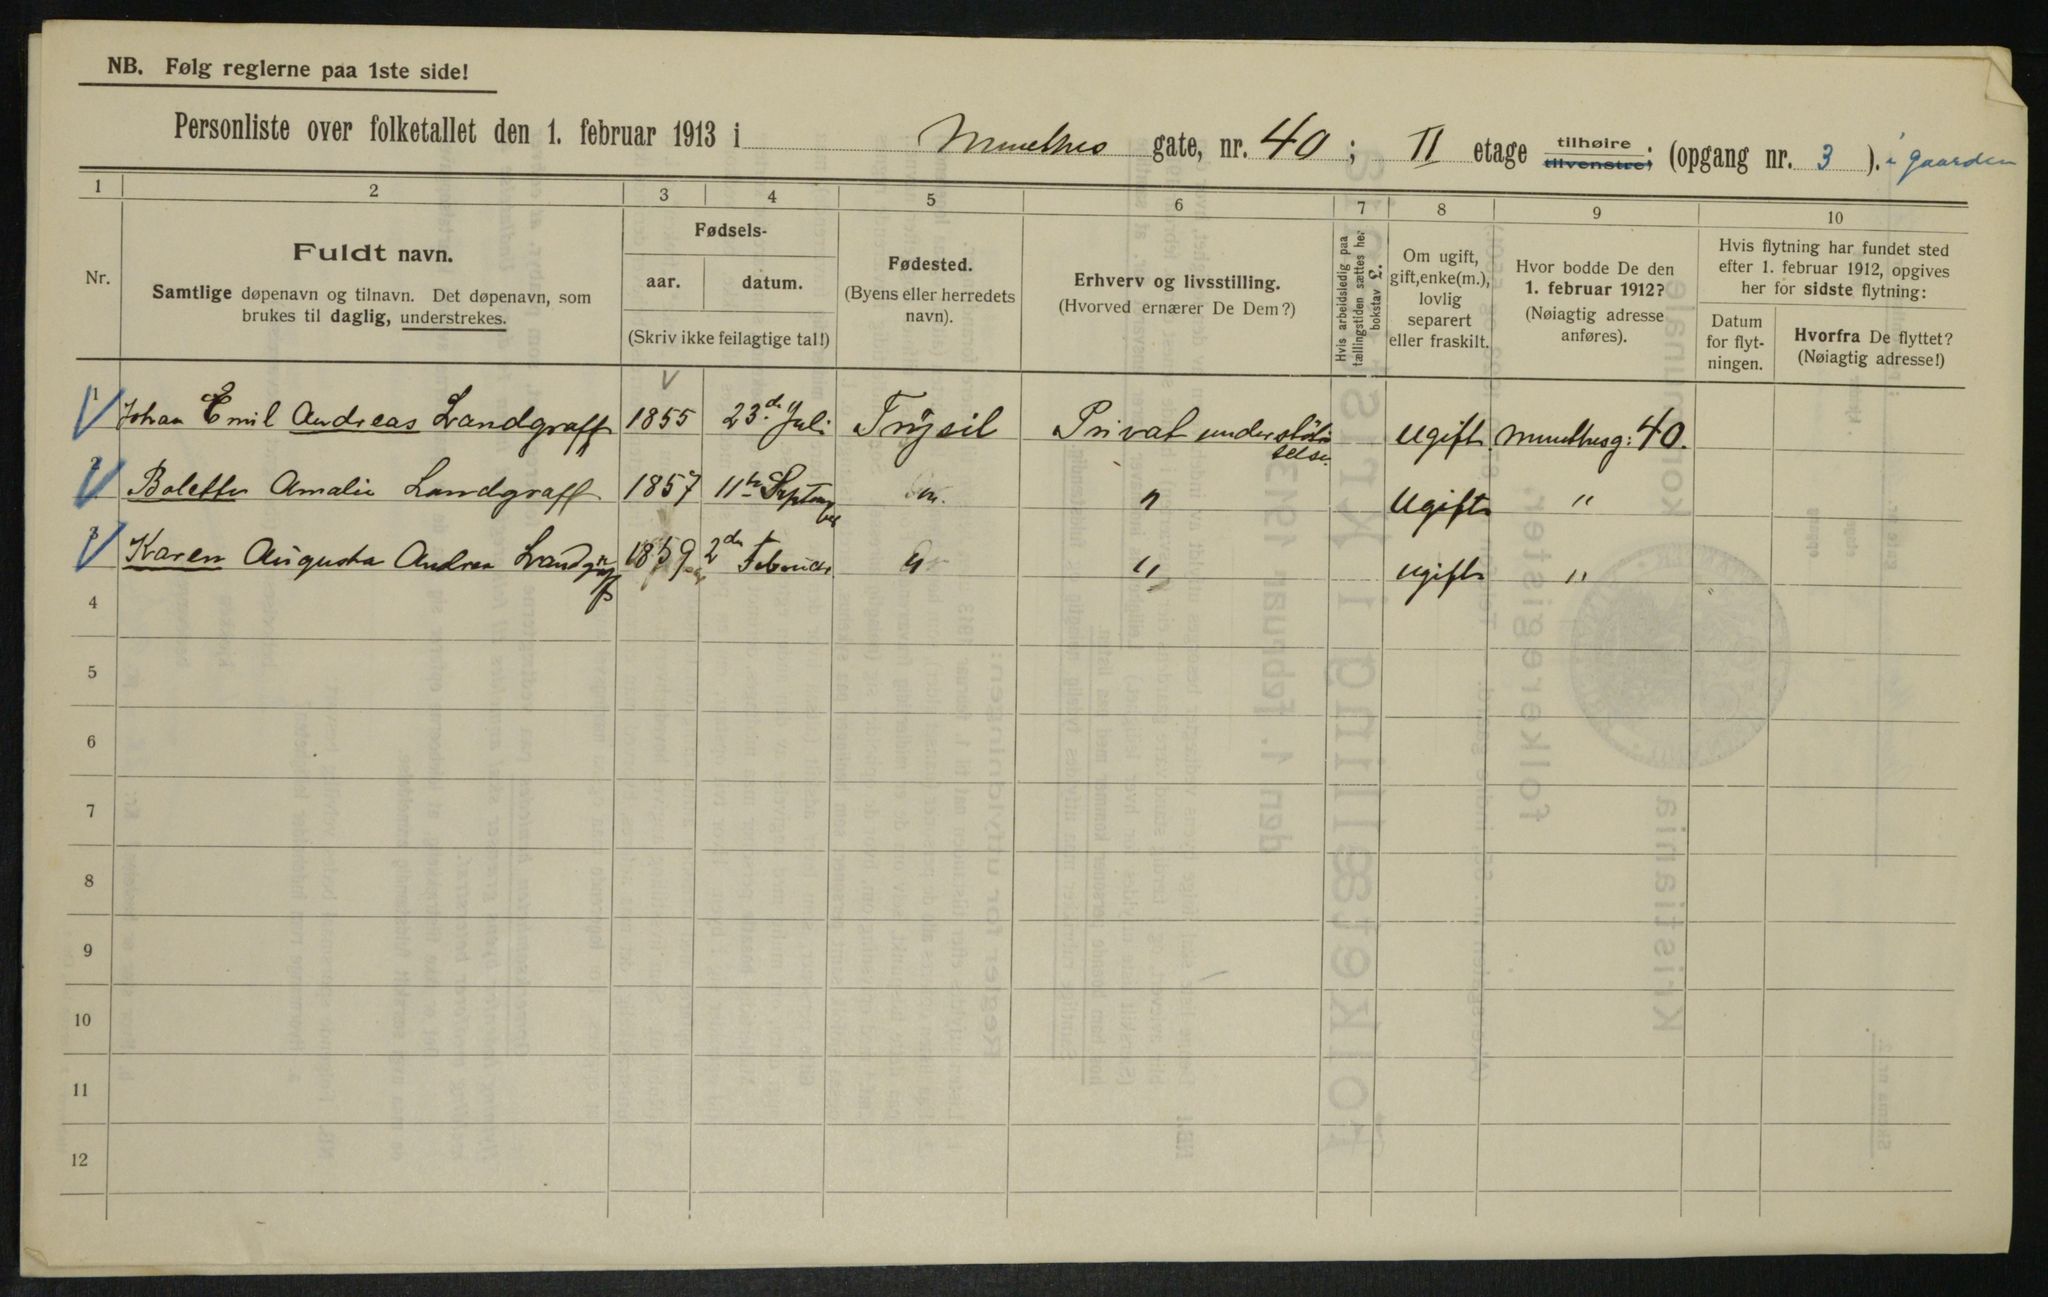 NB. Følg reglerne paa 1ste side!
Personliste over folketallet den 1. februar 1913 i Munthes gate, nr. 40; II etage tilhøire tilvenstre; (opgang nr. 3 ). i gaarden
1 2 3 4 5 6 7 8 9 10
Nr.
Fuldt navn.
Samtlige døpenavn og tilnavn. Det døpenavn, som
brukes til daglig, understrekes.
Fødsels-
aar. datum.
(Skriv ikke feilagtige tal!)
Fødested.
(Byens eller herredets
navn).
Erhverv og livsstilling.
(Hvorved ernærer De Dem?)
Hvis arbeidsledig paa
tællingstiden sættes her
bokstav L.
Om ugift,
gift, enke(m.),
lovlig
separert
eller fraskilt.
Hvor bodde De den
1. februar 1912?
(Nøiagtig adresse
anføres).
Hvis flytning har fundet sted
efter 1. februar 1912, opgives
her for sidste flytning:
Datum
for flyt-
ningen.
Hvorfra De flyttet?
(Nøiagtig adresse!)
1 Johan Emil Andreas Landgraff 1855 23de Juli Trysil Privat understøttelse Ugift Munthesg: 40.
2 Bolette Amalie Landgraff 1857 11te September " Ugift "
3 Karen Augusta Andrea Landgraff 1859 2den Februar " " Ugift "
4
5
6
7
8
9
10
11
12